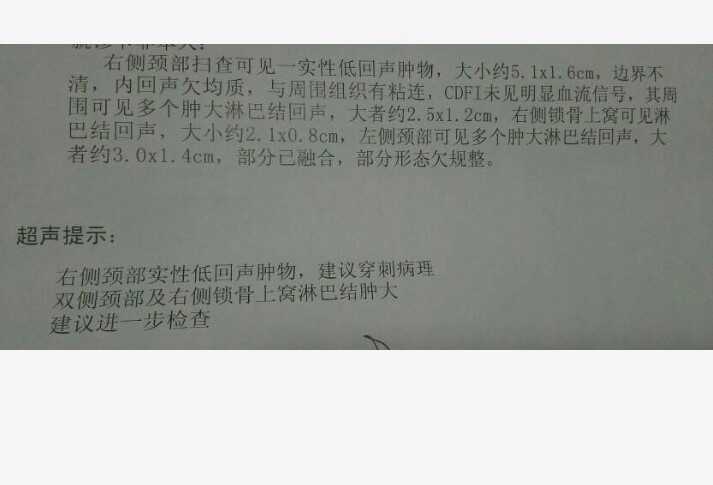 右侧颈部扫查可见一实性低回声肿物，大小约5.1x1.6cm，边界不
清，内回声欠均质，与周围组织有粘连，CDFI未见明显血流信号，其周
围可见多个肿大淋巴结回声，大者约2.5x1.2cm，右侧锁骨上窝可见淋
巴结回声，大小约2.1x0.8cm，左侧颈部可见多个肿大淋巴结回声，大
者约3.0x1.4cm，部分己融合，部分形态欠规整。
超声提示：
右侧颈部实性低回声肿物，建议穿刺病理
双侧颈部及右侧锁骨上窝淋巴结肿大
建议进一步检查